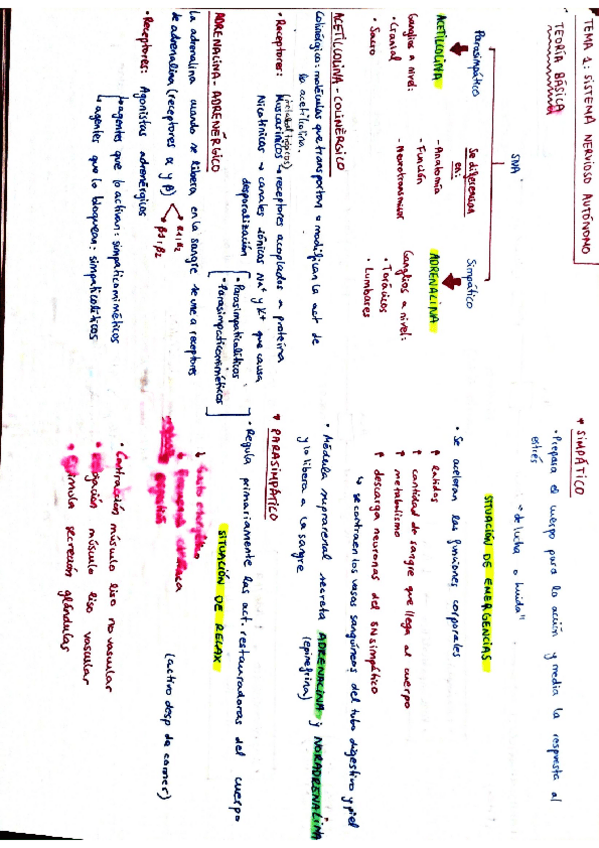 TEMA 1: SISTEMA NERVIOSO AUTÓNOMO
TEORÍA BÁSICA
SNA
Parasimpático
Simpático
Se diferencian en:
- Anatomía
- Función
- Neurotransmisor
ACETILCOLINA
Ganglios a nivel:
• Craneal
• Sacro
ADRENALINA
Ganglios a nivel:
• Torácicos
• Lumbares
ACETILCOLINA - COLINÉRGICO
Colinérgico: moléculas que transportan o modifican la act de
la acetilcolina.
• Receptores: Muscarínicos → receptores acoplados a proteína
(metabotrópicos)
Nicotínicos → canales iónicos Na+ y K+ que causa
despolarización
• Parasimpaticolíticos
• Parasimpaticomiméticos
ADRENALINA - ADRENÉRGICO
La adrenalina cuando se libera en la sangre se une a receptores
de adrenalina (receptores α y β)
α1 α2
β1 β2
• Receptores: Agonistas adrenérgicos
↳ agentes que lo activan: simpaticomiméticos
↳ agentes que lo bloquean: simpaticolíticos
* SIMPÁTICO
• Prepara el cuerpo para la acción y media la respuesta al
estrés
"de lucha o huida"
SITUACIÓN DE EMERGENCIAS
• Se aceleran las funciones corporales
↑ latidos
↑ cantidad de sangre que llega al cuerpo
↑ metabolismo
↑ descarga neuronas del SN simpático
↳ se contraen los vasos sanguíneos del tubo digestivo y piel
• Médula suprarrenal secreta ADRENALINA y NORADRENALINA
(epinefrina)
y lo libera a la sangre
* PARASIMPÁTICO
• Regula primariamente las act. restauradoras del cuerpo
SITUACIÓN DE RELAX
↓ Gasto energético
(activo desp de comer)
• Contracción músculo liso no vascular
músculo liso vascular
• Estimula secreción glándulas